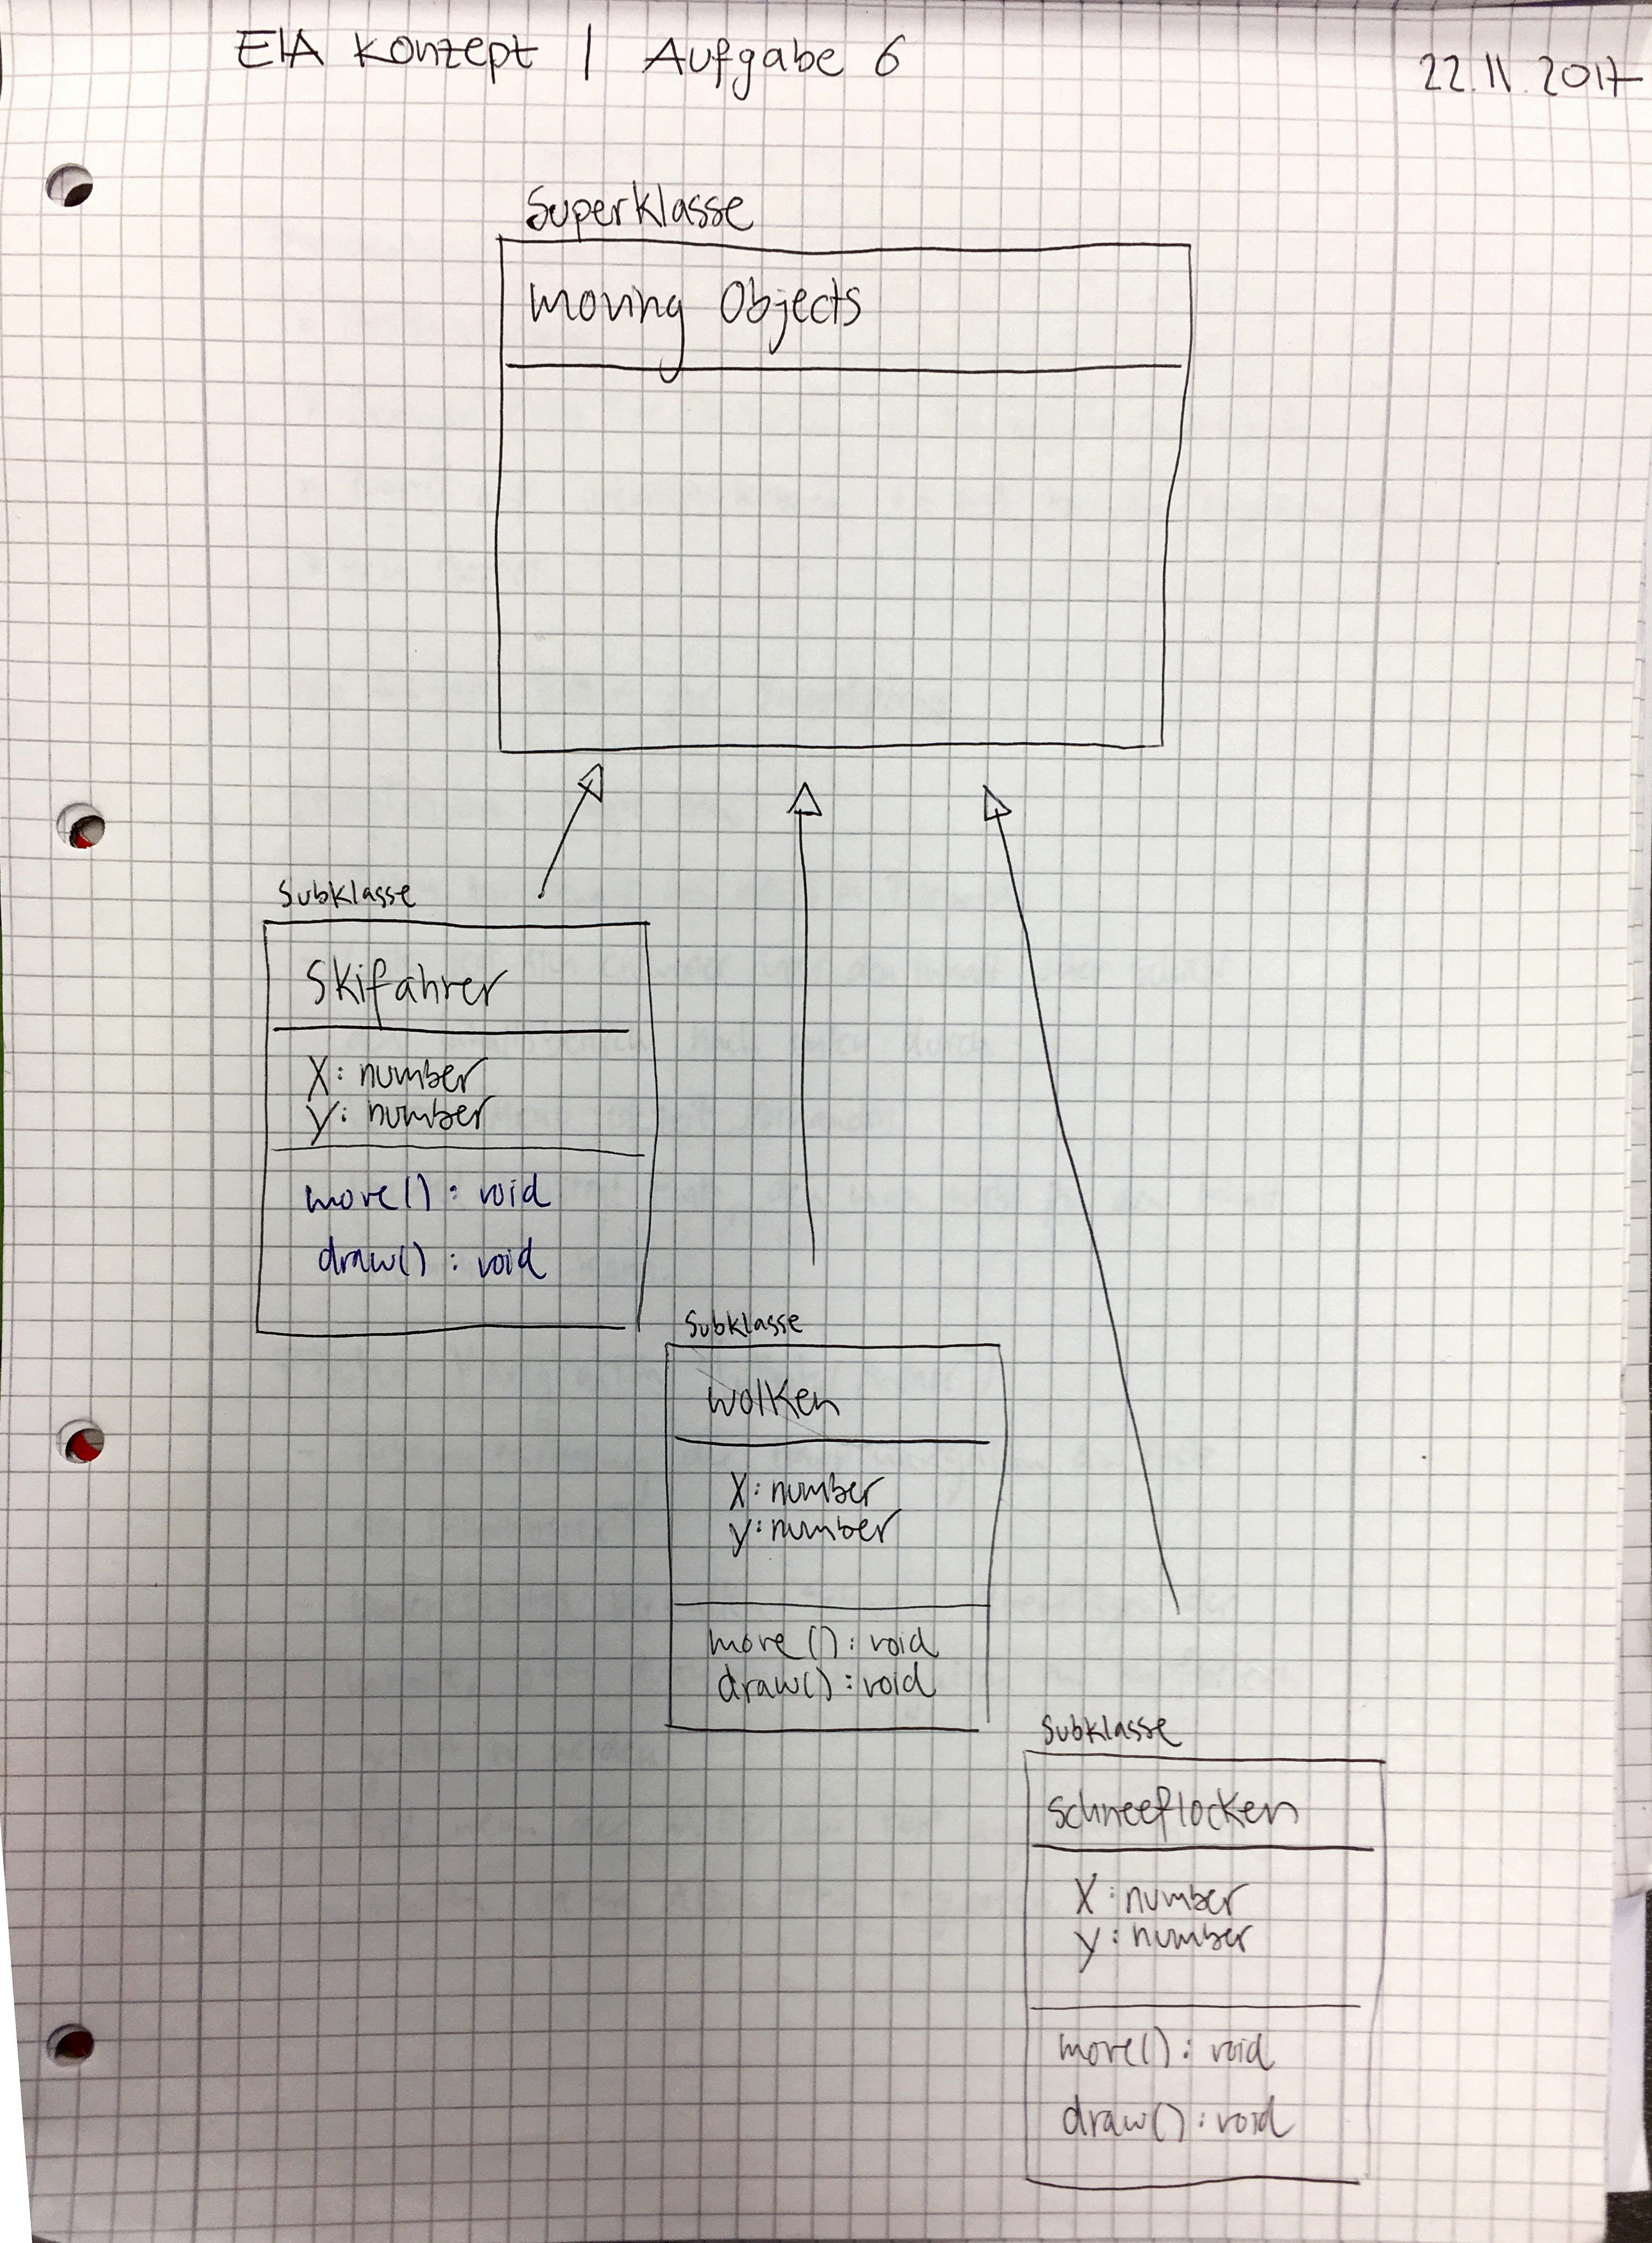 EIA Konzept | Aufgabe 6
22.11.2017
Superklasse
moving Objects
Subklasse
Skifahrer
X: number
y: number
move() : void
draw() : void
Subklasse
Wolken
X: number
y: number
move(): void
draw(): void
Subklasse
Schneeflocken
X: number
y: number
move(): void
draw(): void